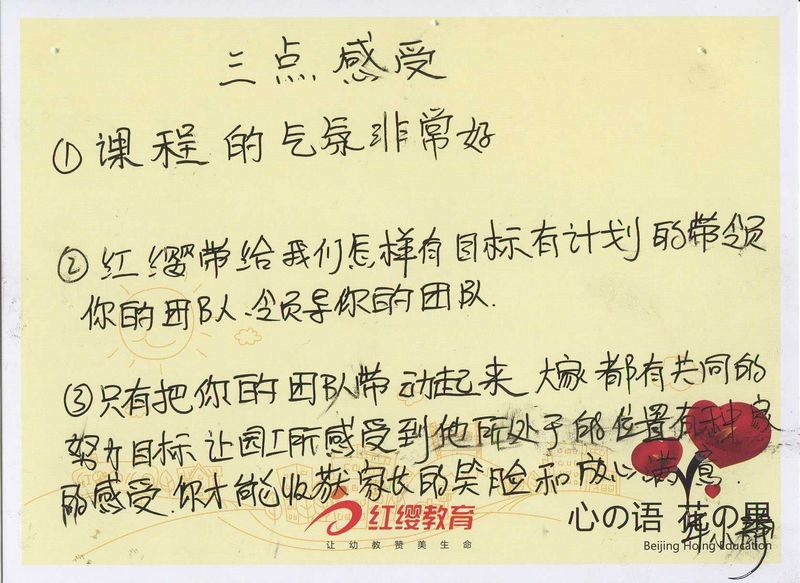 三点感受
①课程的气氛非常好
②红缨带给我们怎样有目标有计划的带领
你的团队、领导你的团队.
③只有把你的团队带动起来 大家都有共同的
努力目标 让园工所感受到他所处于的位置有种家
的感受.你才能收获家女的笑脸和放心满意.
红缨教育
让幼教赞美生命
心の语 花の墨
Beijing Hoing Education